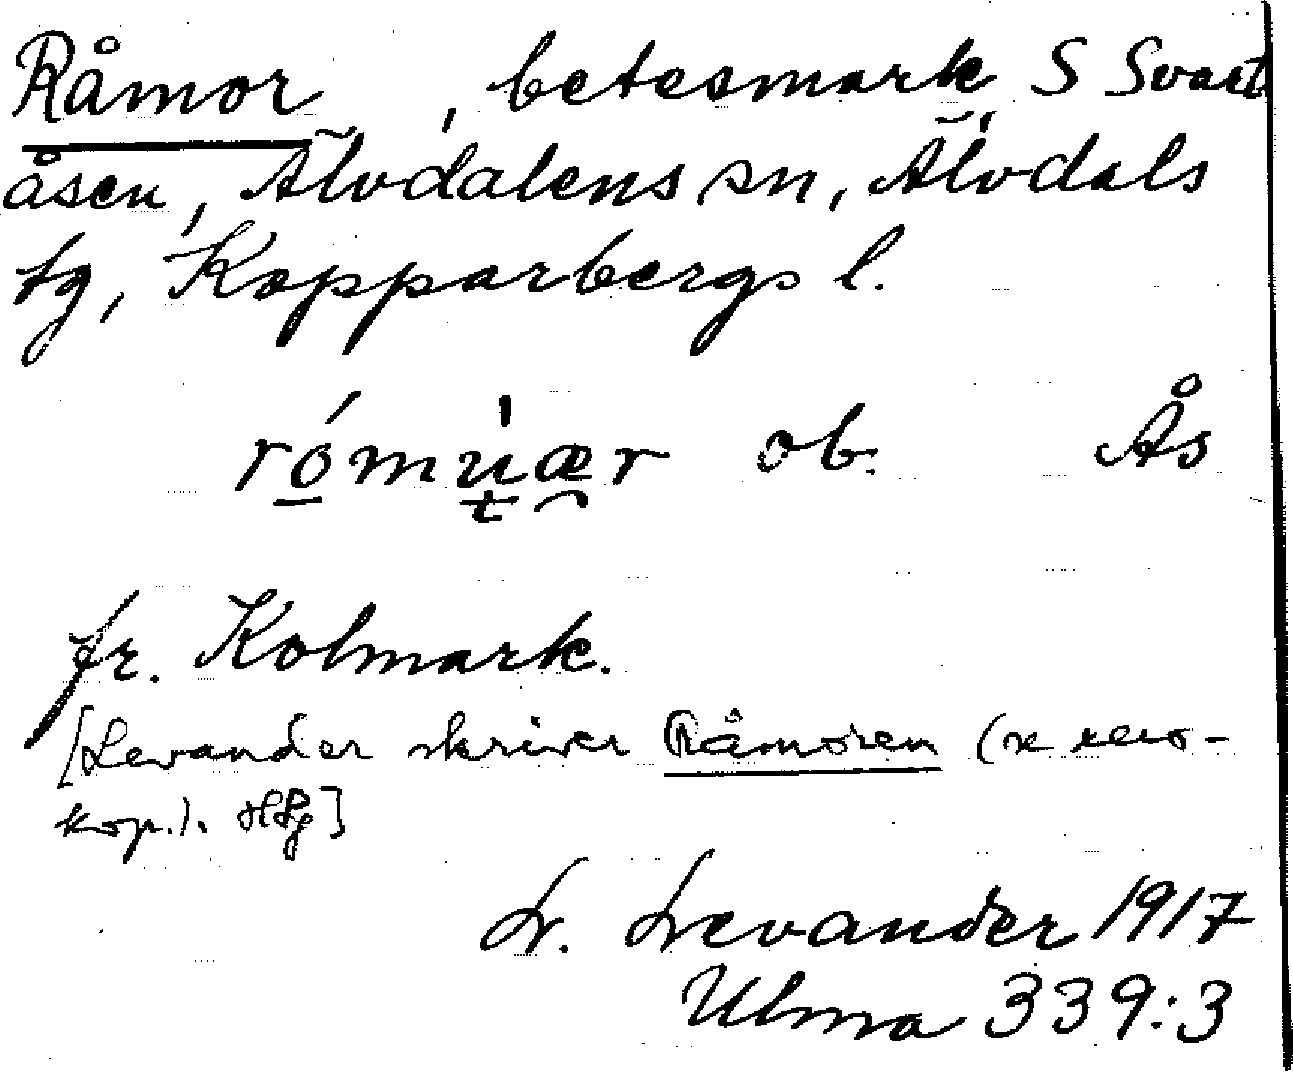 Råmor, betesmark S Svart
åsen, Älvdalens sn, Älvdals
tg, Kopparbergs l.
rómu̍ær ob. Ås
fr. Kolmark.
[Levander skriver Råmoren (se xero-
kop.).
L. Levander 1917
Ulma 339:3